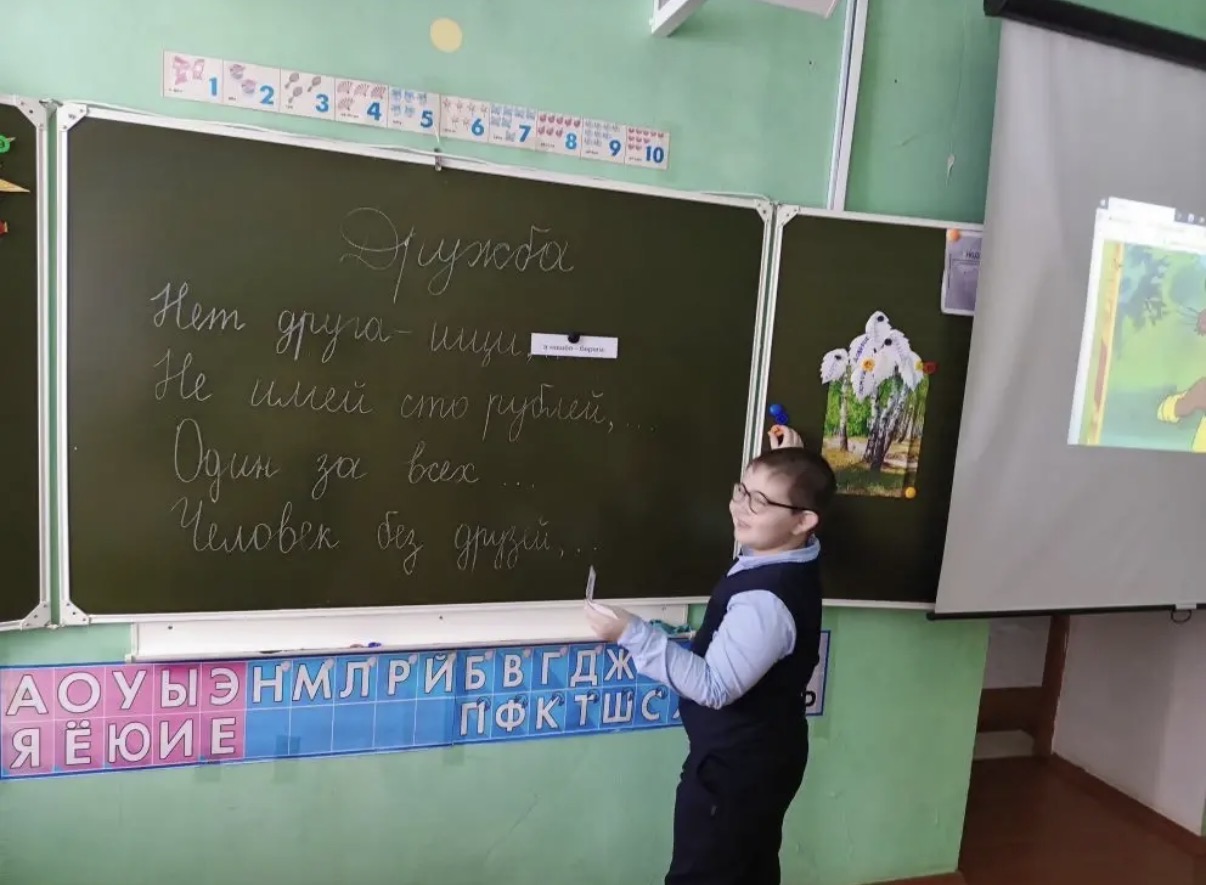 1 2 3 4 5 6 7 8 9 10
Дружба
Нет друга - ищи,
а нашёл - береги.
Не имей сто рублей, ...
Один за всех ...
Человек без друзей, ...
А О У Ы Э Н М Л Р Й Б В Г Д Ж
Я Ё Ю И Е П Ф К Т Ш С